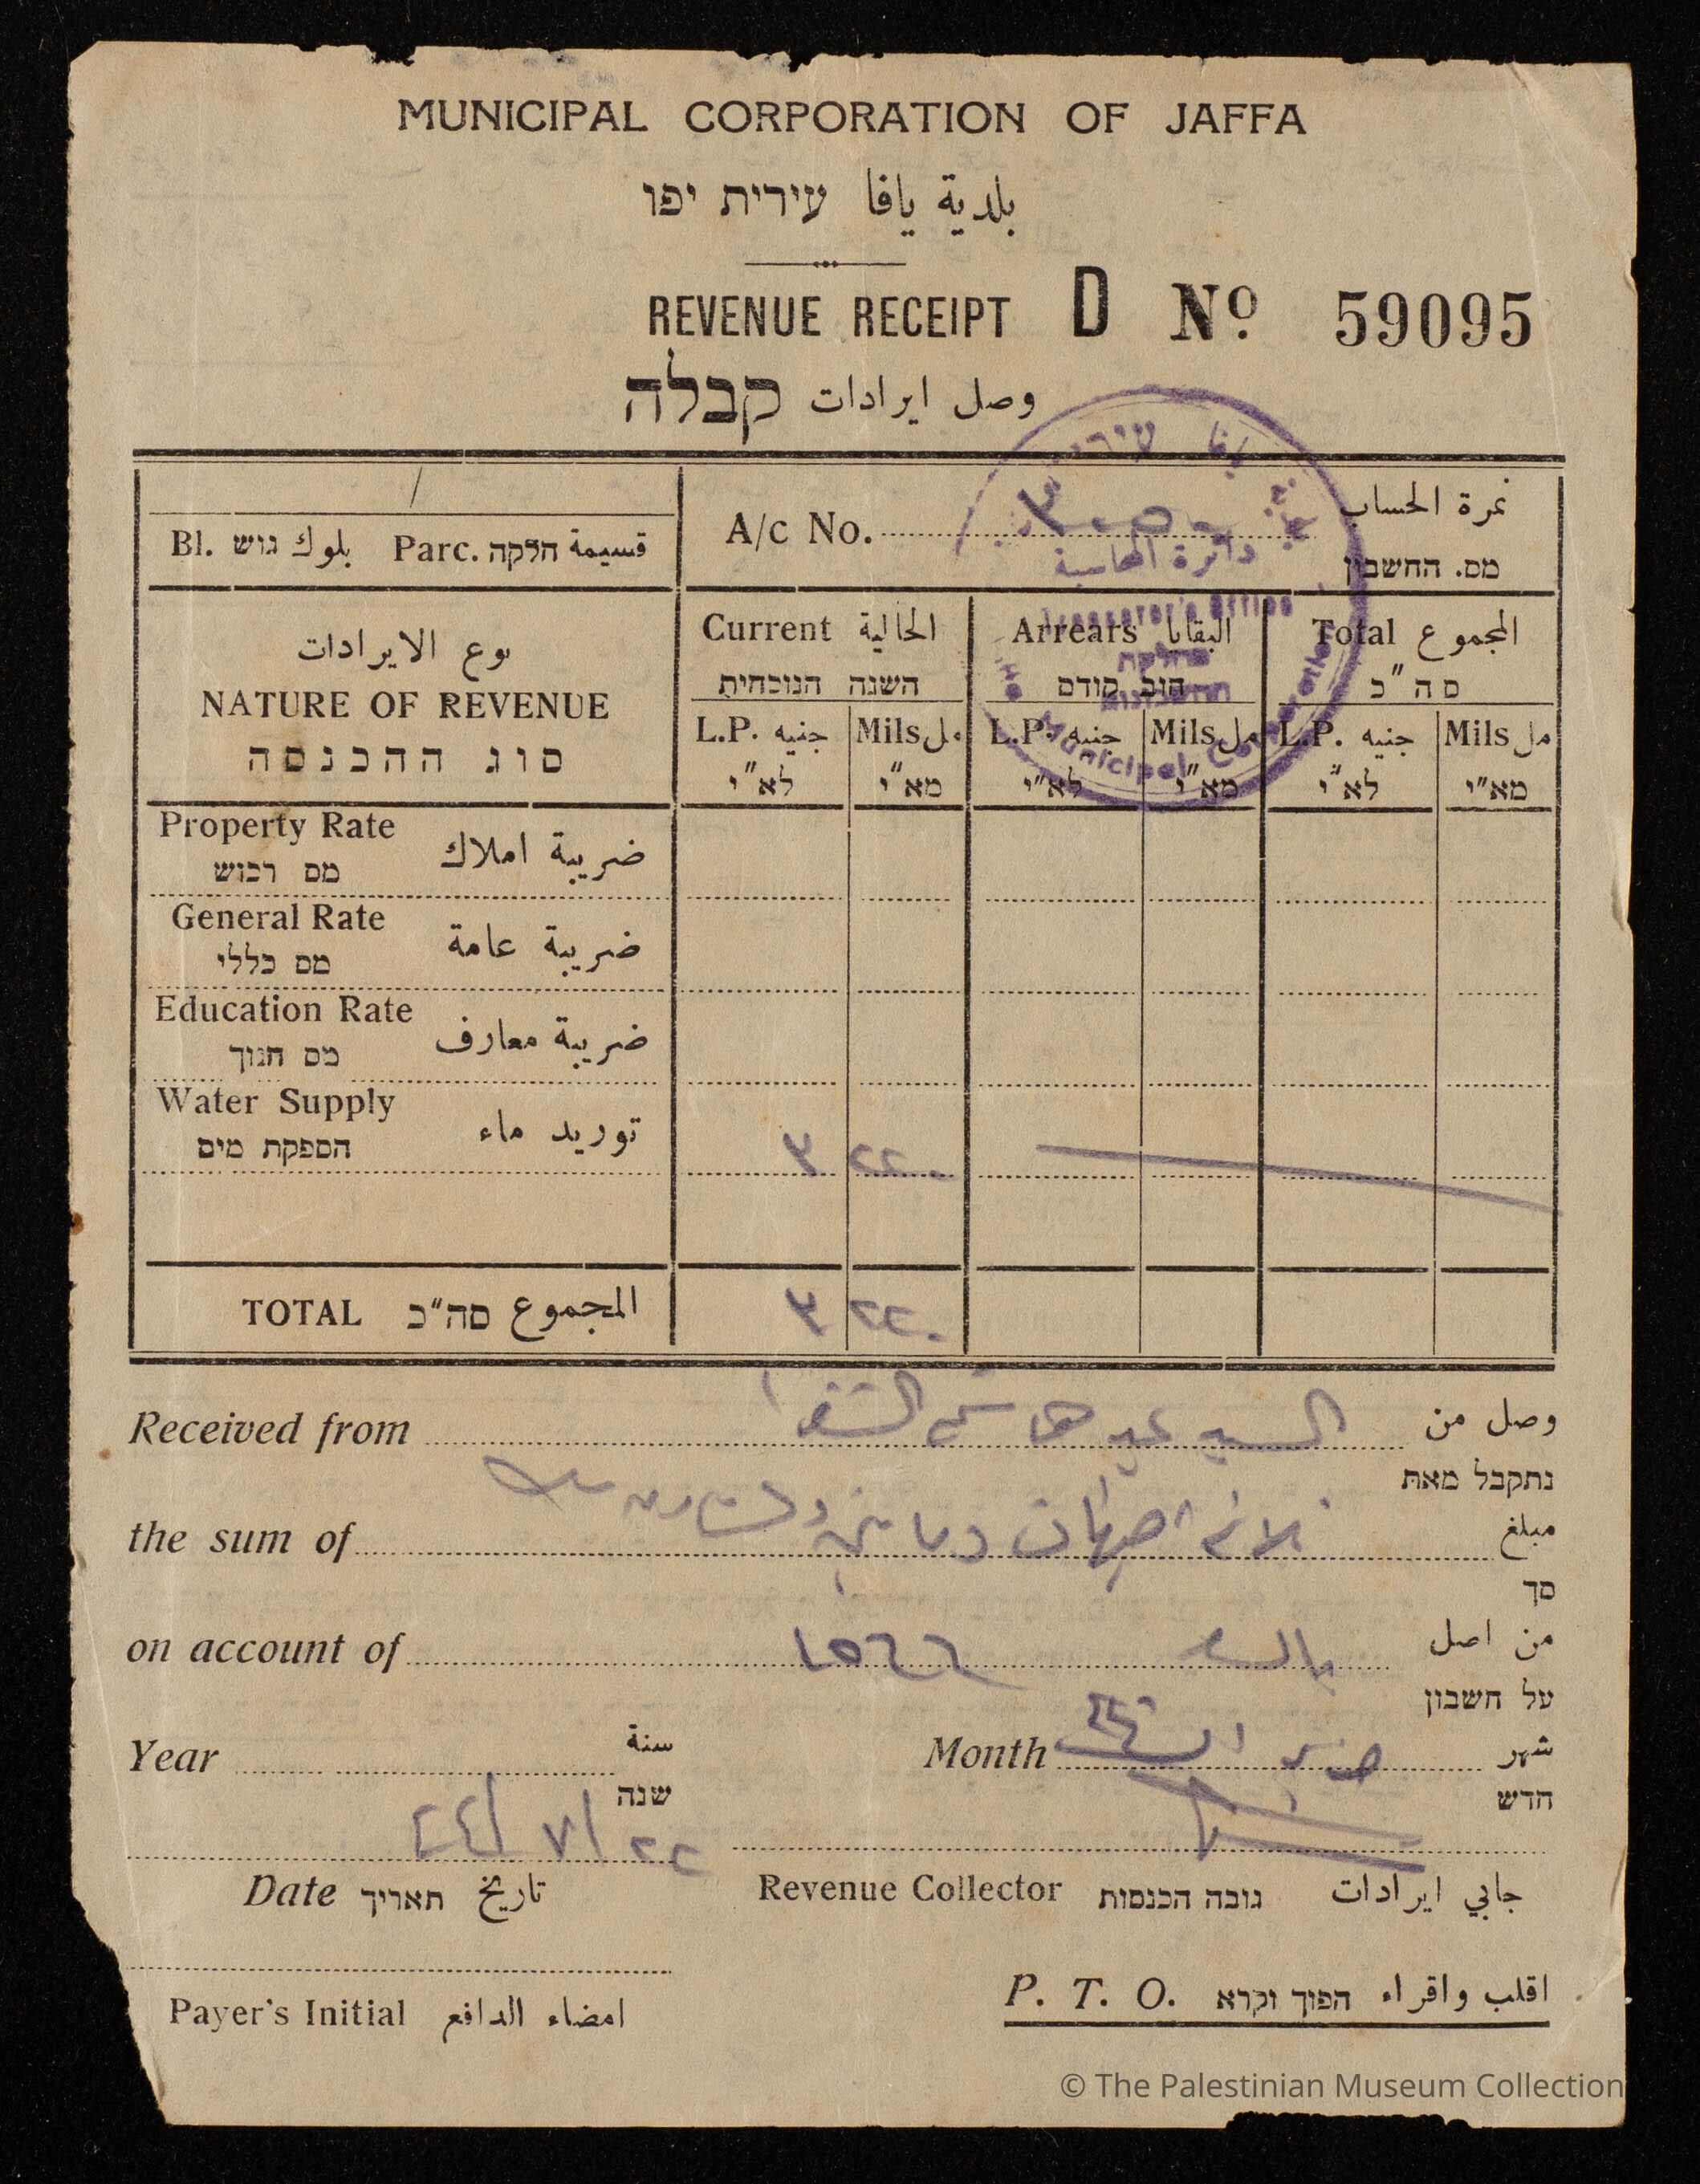 MUNICIPAL CORPORATION OF JAFFA
بلدية يافا עירית יפו
REVENUE RECEIPT D Nº 59095
وصل ايرادات קבלה
Bl. גוש بلوك Parc. חלקה قسيمة
A/c No. نمرة الحساب
מס. החשבון
دائرة المحاسبة
Treasurer's Office
מחלקת
החשבונות
Municipal Corporation
نوع الايرادات
NATURE OF REVENUE
סוג ההכנסה
Current الحالية
השנה הנוכחית
Arrears البقايا
חוב קודם
Total المجموع
סה"כ
L.P. جنيه Mils مل L.P. جنيه Mils مل L.P. جنيه Mils مل
לא"י מא"י לא"י מא"י לא"י מא"י
Property Rate ضريبة املاك
מס רכוש
General Rate ضريبة عامة
מס כללי
Education Rate ضريبة معارف
מס חנוך
Water Supply توريد ماء
הספקת מים
٣ ٢٢٠
TOTAL סה"כ المجموع ٣ ٢٢٠
Received from السيد وصل من
נתקבל מאת
the sum of مبلغ
סך
on account of من اصل
על חשבון
Year سنة
שנה
Month شهر
חדש
٢٢/٧/٤٤
Date תאריך تاريخ
Revenue Collector גובה הכנסות جابي ايرادات
Payer's Initial امضاء الدافع
P. T. O. הפוך וקרא اقلب واقراء
© The Palestinian Museum Collection